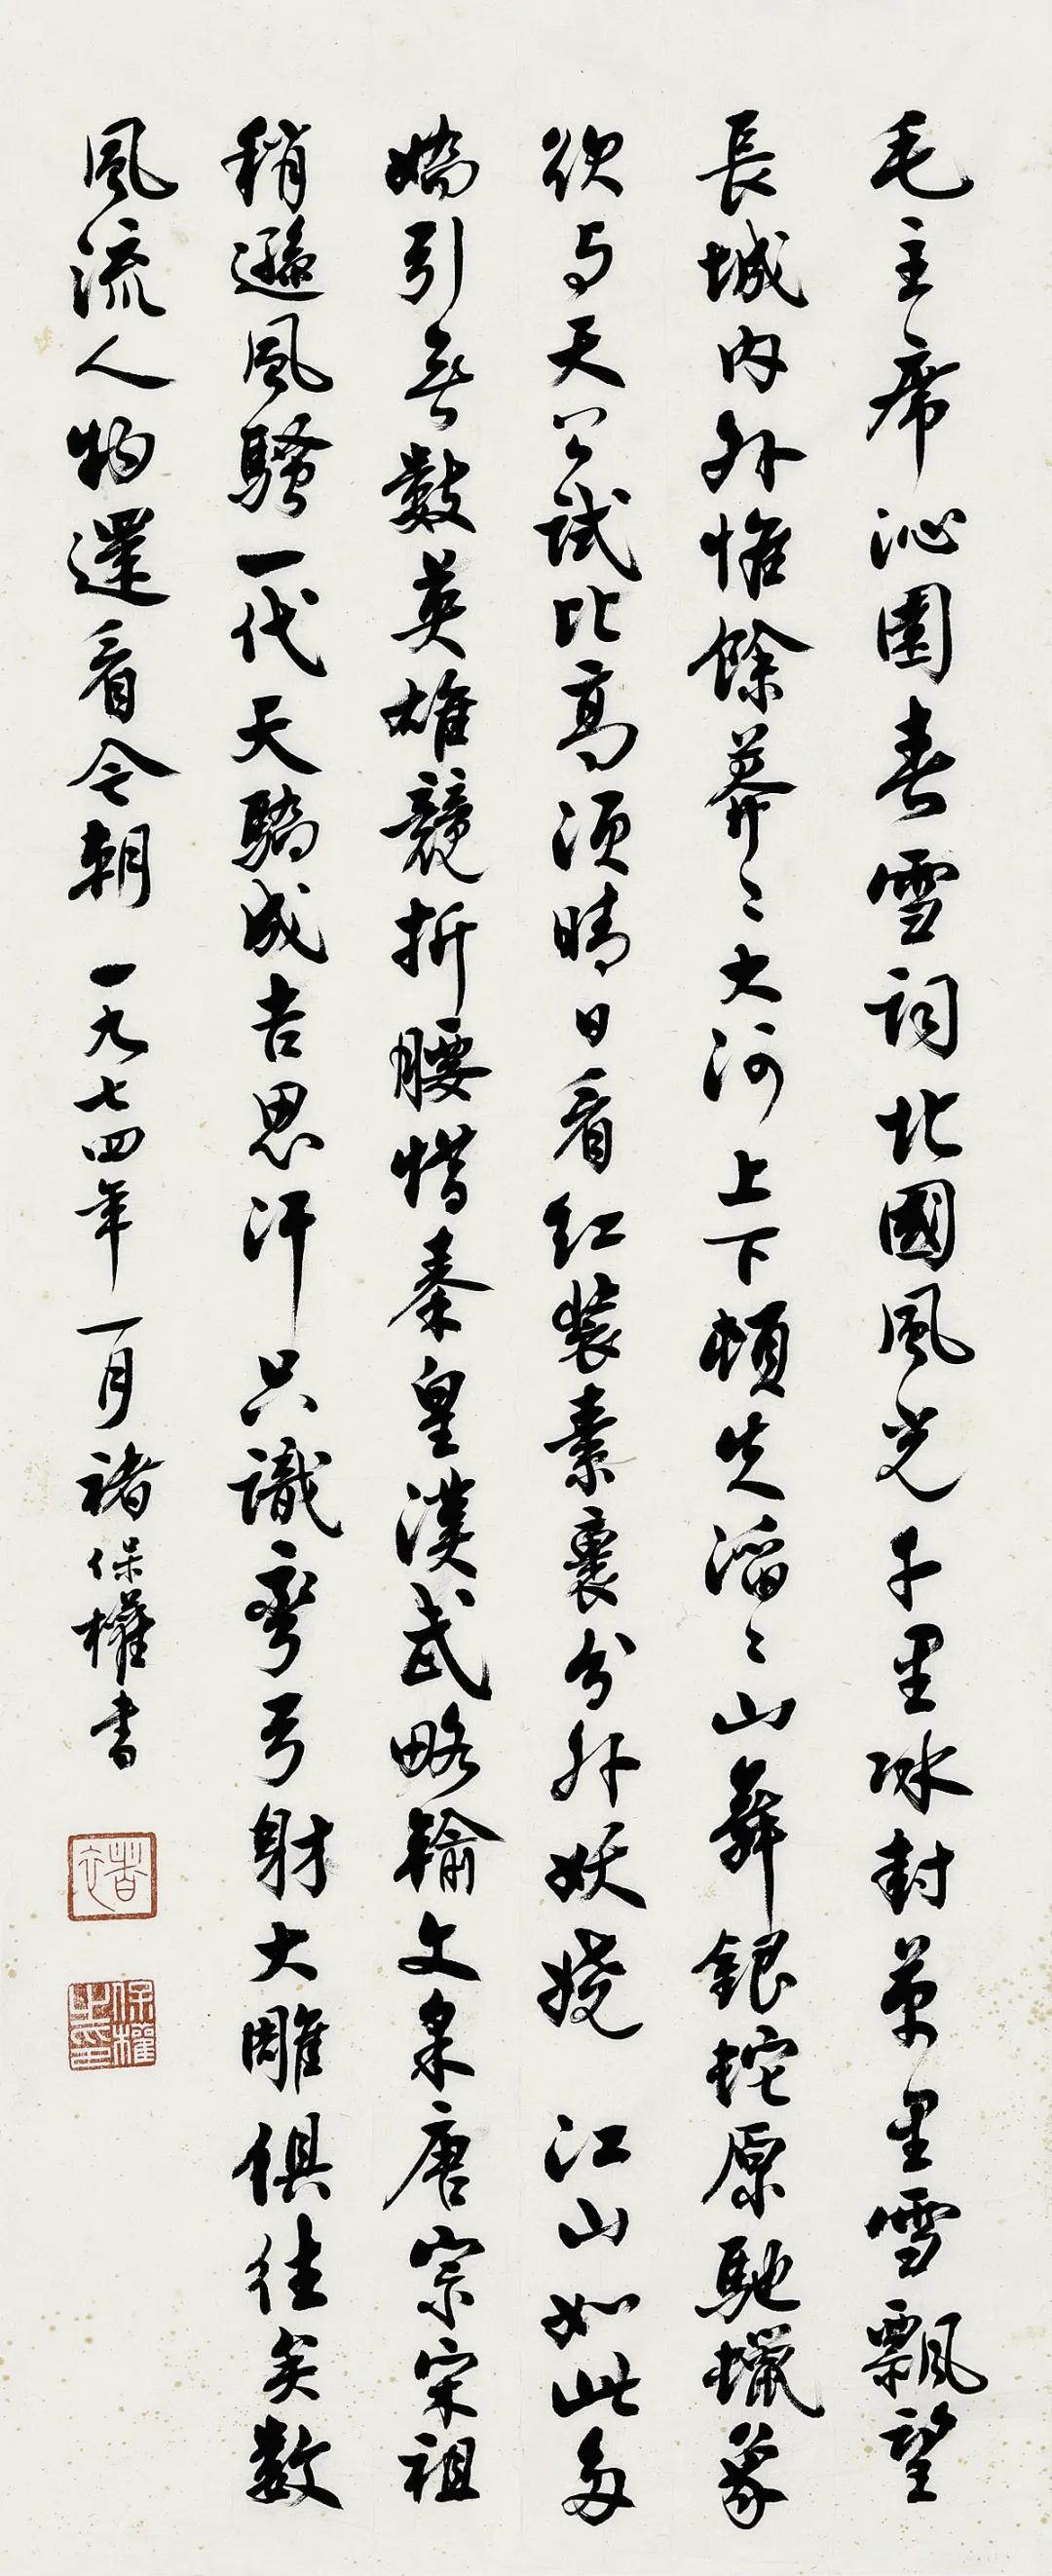 毛主席沁園春雪詞北國風光千里冰封萬里雪飄望
長城内外惟餘莽〻大河上下頓失滔〻山舞銀蛇原馳蠟象
欲与天公試比高須晴日看紅裝素裹分外妖嬈 江山如此多
嬌引無數英雄競折腰惜秦皇漢武略輸文采唐宗宋祖
稍遜風騷一代天驕成吉思汗只識彎弓射大雕俱往矣数
風流人物還看今朝 一九七四年一月褚保權書
褚
保權之印